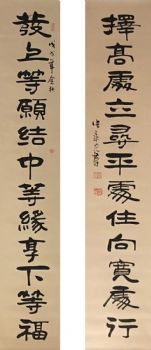 擇高處立尋平處住向寬處行
發上等願結中等緣享下等福